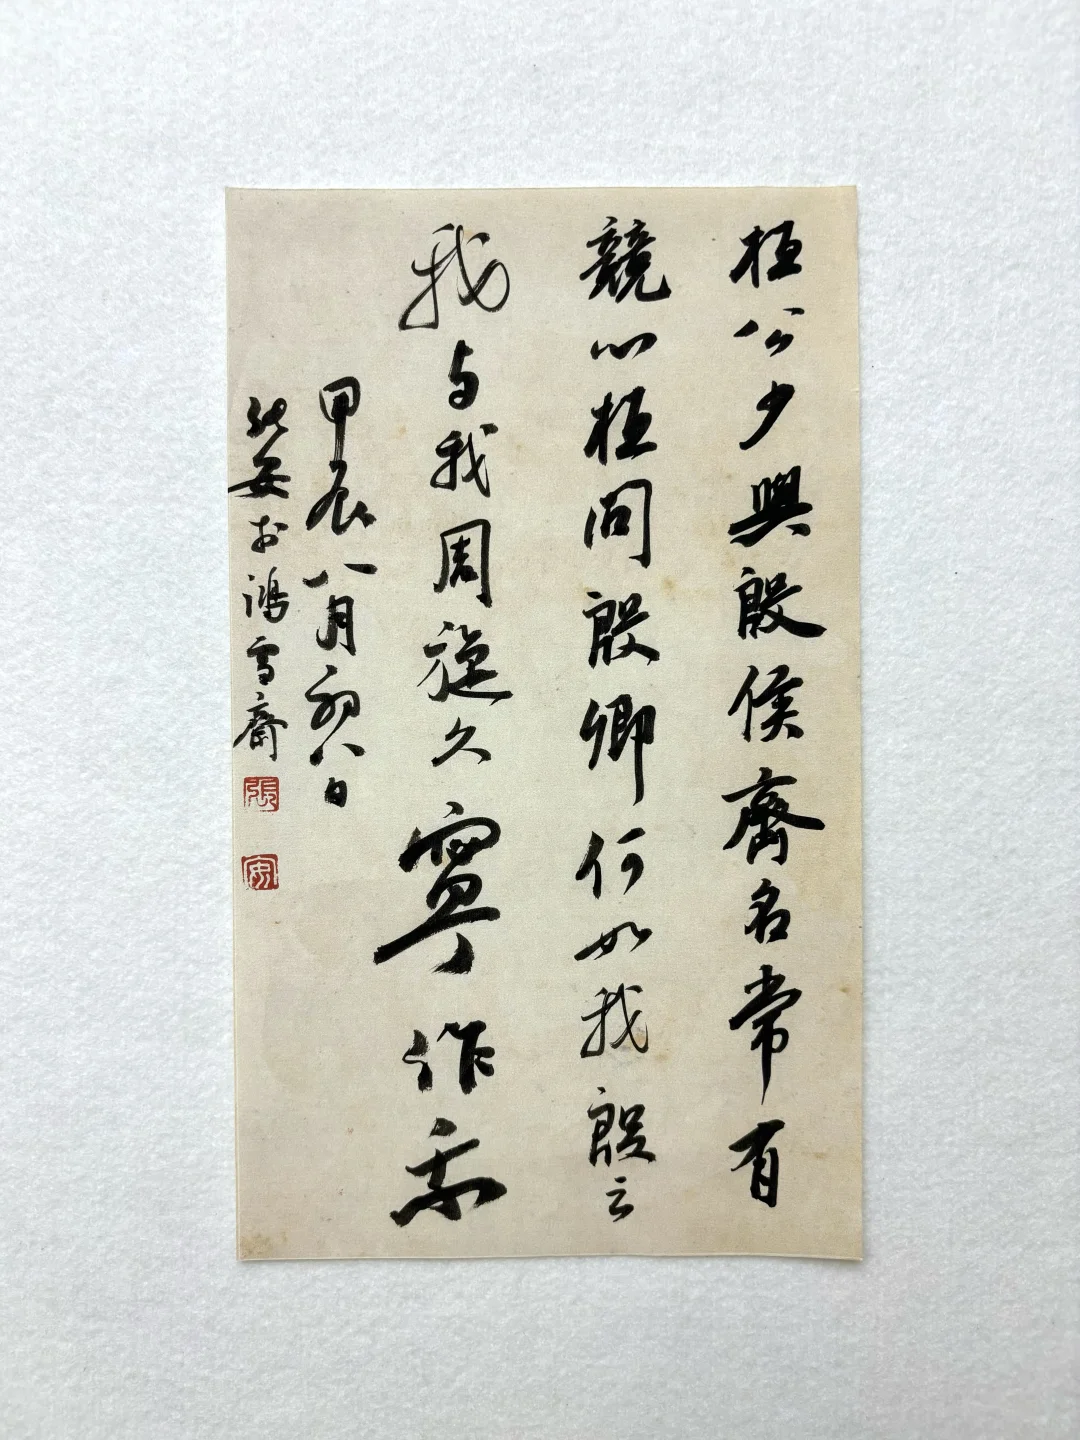 桓公少與殷侯齋名常有
競心桓問殷卿何如我殷云
我与我周旋久寧作我
甲辰八月初八日
安于鴻雪齋
張
安